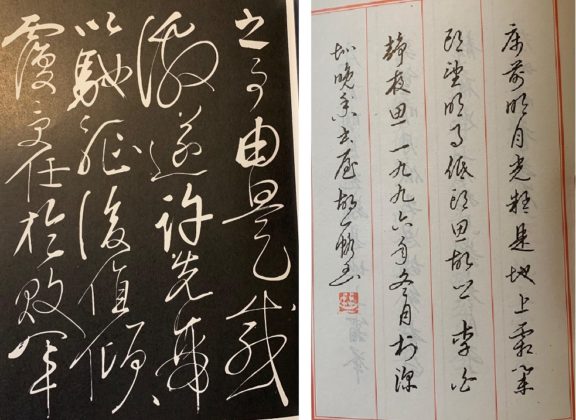 之事由是感
激遂許先帝
以馳驅後值傾
覆受任於敗軍
床前明月光疑是地上霜舉
頭望明月低頭思故鄉 李白
靜夜思 一九九六年冬月於深
圳晚香書屋